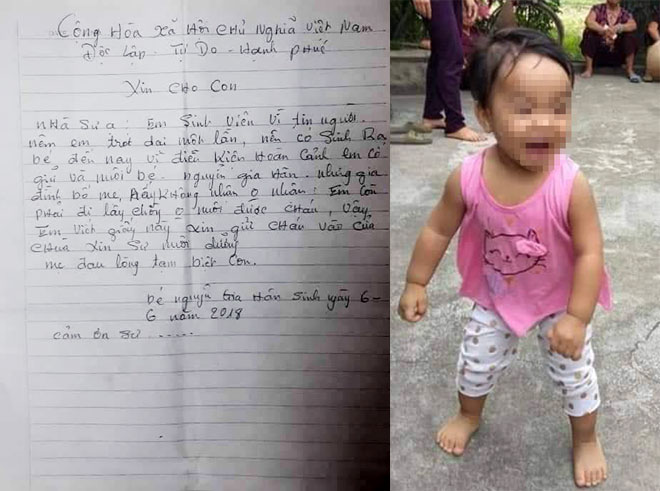 Cộng Hòa Xã Hội Chủ Nghĩa Việt Nam
Độc Lập - Tự Do - Hạnh Phúc
Xin Cho Con
Nhà Sư ạ: Em Sinh Viên Vì tin người.
nên em trót dại một lần, nên có Sinh Ra
bé đến nay vì điều Kiện Hoàn Cảnh Em Có
giữ và nuôi bé. nguyễn gia Hân. nhưng gia
đình bố mẹ, Hấy Không nhân o nhân: Em Còn
phải đi lấy chồng o nuôi được cháu, Vậy
Em Viết giấy này xin gửi cháu vào cửa
chùa Xin Sư nuôi dưỡng
mẹ đau lòng tạm biệt con.
bé nguyễn Gia Hân Sinh ngày 6-
6 năm 2018
cảm ơn sư .....